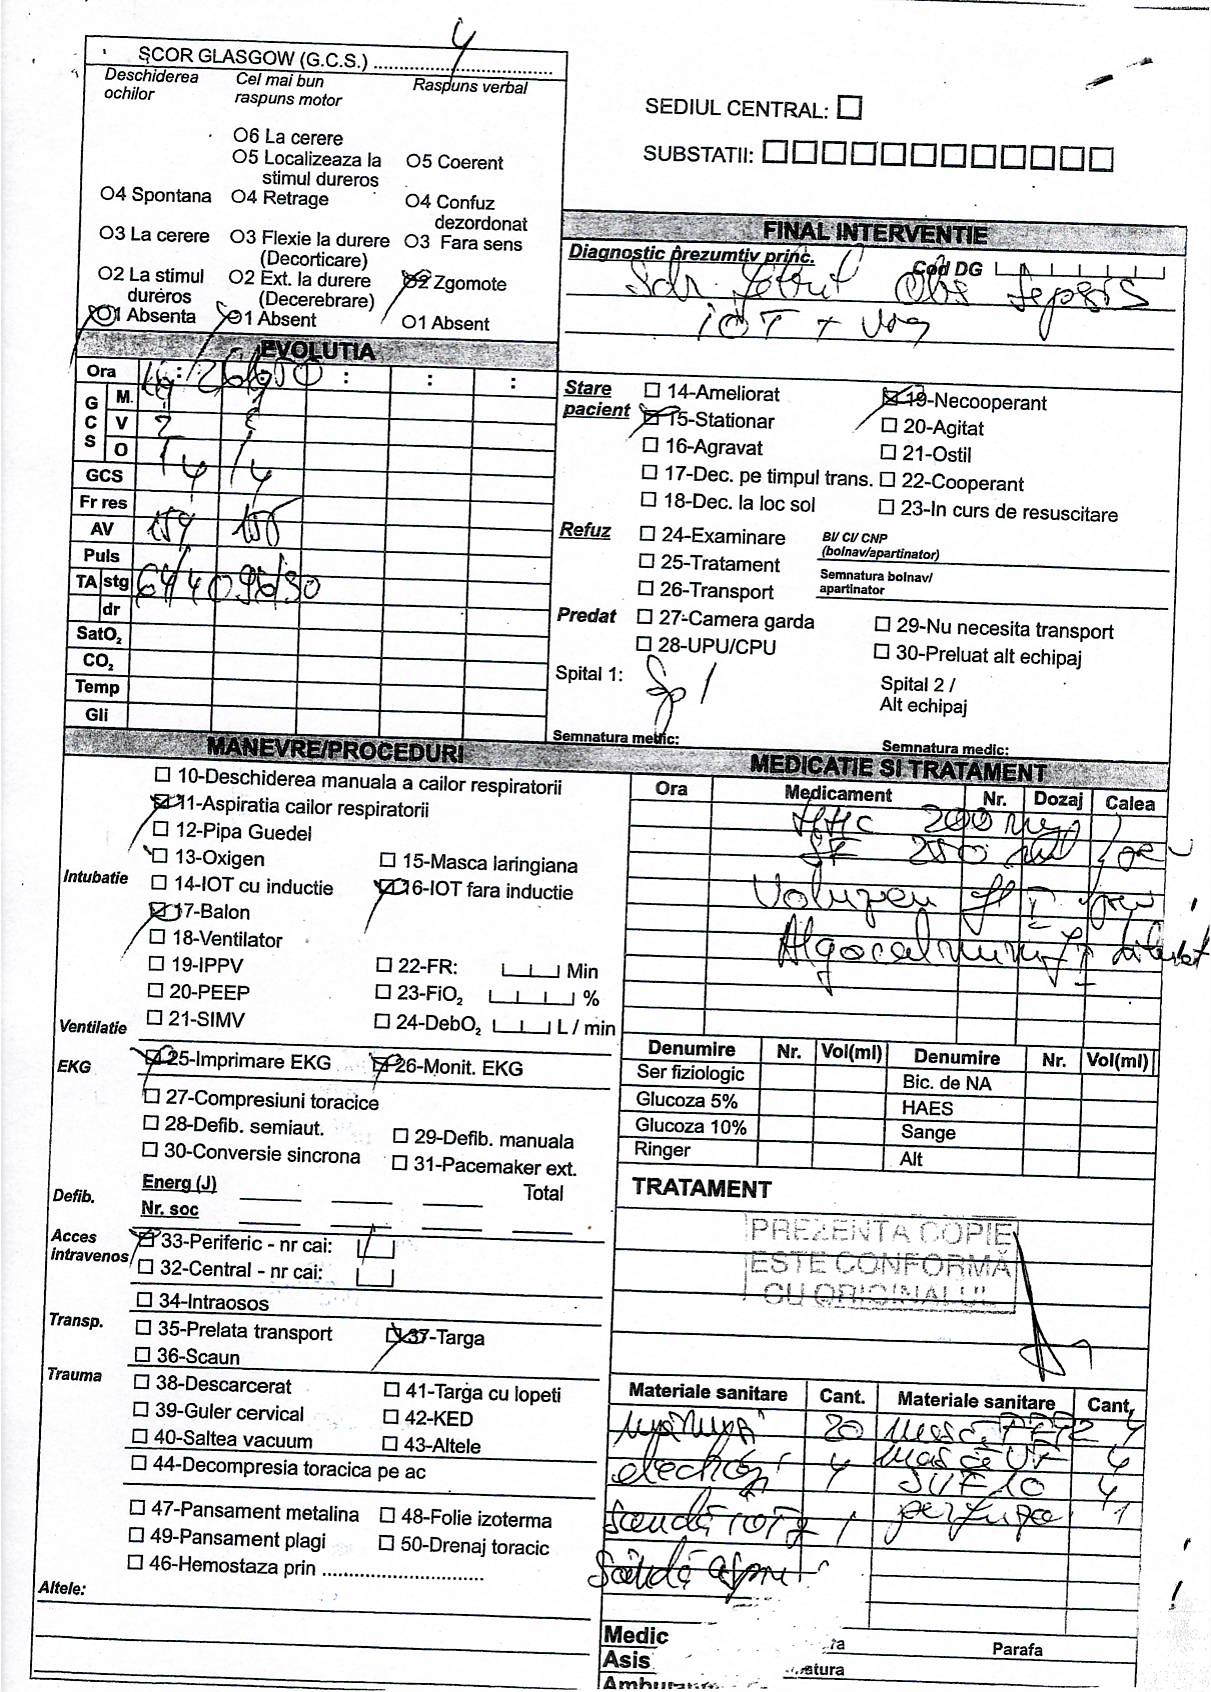 SCOR GLASGOW (G.C.S.) ........ 4
Deschiderea ochilor
Cel mai bun raspuns motor
Raspuns verbal
O6 La cerere
O5 Localizeaza la stimul dureros
O5 Coerent
O4 Spontana
O4 Retrage
O4 Confuz dezordonat
O3 La cerere
O3 Flexie la durere (Decorticare)
O3 Fara sens
O2 La stimul dureros
O2 Ext. la durere (Decerebrare)
O2 Zgomote
O1 Absenta
O1 Absent
O1 Absent
SEDIUL CENTRAL:
SUBSTATII:
FINAL INTERVENTIE
Diagnostic prezumtiv princ.
Cod DG
Sdr. febril Obs Sepsis
IOT +
EVOLUTIA
Ora
GCS
M.
V 2
O 1
GCS 4 4
Fr res
AV 159 155
Puls
TA stg 64/40 96/50
dr
SatO₂
CO₂
Temp
Gli
Stare pacient
14-Ameliorat
19-Necooperant
15-Stationar
20-Agitat
16-Agravat
21-Ostil
17-Dec. pe timpul trans.
22-Cooperant
18-Dec. la loc sol
23-In curs de resuscitare
Refuz
24-Examinare
BI/ CI/ CNP (bolnav/apartinator)
25-Tratament
Semnatura bolnav/ apartinator
26-Transport
Predat
27-Camera garda
29-Nu necesita transport
28-UPU/CPU
30-Preluat alt echipaj
Spital 1: Sp 1
Spital 2 / Alt echipaj
Semnatura medic:
Semnatura medic:
MANEVRE/PROCEDURI
10-Deschiderea manuala a cailor respiratorii
11-Aspiratia cailor respiratorii
12-Pipa Guedel
13-Oxigen
15-Masca laringiana
Intubatie
14-IOT cu inductie
16-IOT fara inductie
17-Balon
18-Ventilator
19-IPPV
22-FR: Min
20-PEEP
23-FiO₂ %
Ventilatie
21-SIMV
24-DebO₂ L / min
EKG
25-Imprimare EKG
26-Monit. EKG
27-Compresiuni toracice
28-Defib. semiaut.
29-Defib. manuala
30-Conversie sincrona
31-Pacemaker ext.
Defib.
Energ (J)
Total
Nr. soc
Acces intravenos
33-Periferic - nr cai: 1
32-Central - nr cai:
34-Intraosos
Transp.
35-Prelata transport
37-Targa
36-Scaun
Trauma
38-Descarcerat
41-Targa cu lopeti
39-Guler cervical
42-KED
40-Saltea vacuum
43-Altele
44-Decompresia toracica pe ac
47-Pansament metalina
48-Folie izoterma
49-Pansament plagi
50-Drenaj toracic
46-Hemostaza prin ........
Altele:
MEDICATIE SI TRATAMENT
Ora
Medicament
Nr.
Dozaj
Calea
HHC 200 mg
SF 250 ml
Voluven fl I
Algocalmin f I
Denumire
Nr.
Vol(ml)
Denumire
Nr.
Vol(ml)
Ser fiziologic
Bic. de NA
Glucoza 5%
HAES
Glucoza 10%
Sange
Ringer
Alt
TRATAMENT
PREZENTA COPIE
ESTE CONFORMĂ
CU ORIGINALUL
Materiale sanitare
Cant.
Materiale sanitare
Cant.
20
4
electrozi 4
4
4
Sondă IOT 1 perfuzor 1
Sondă aspir. 1
Medic
Parafa
Asis